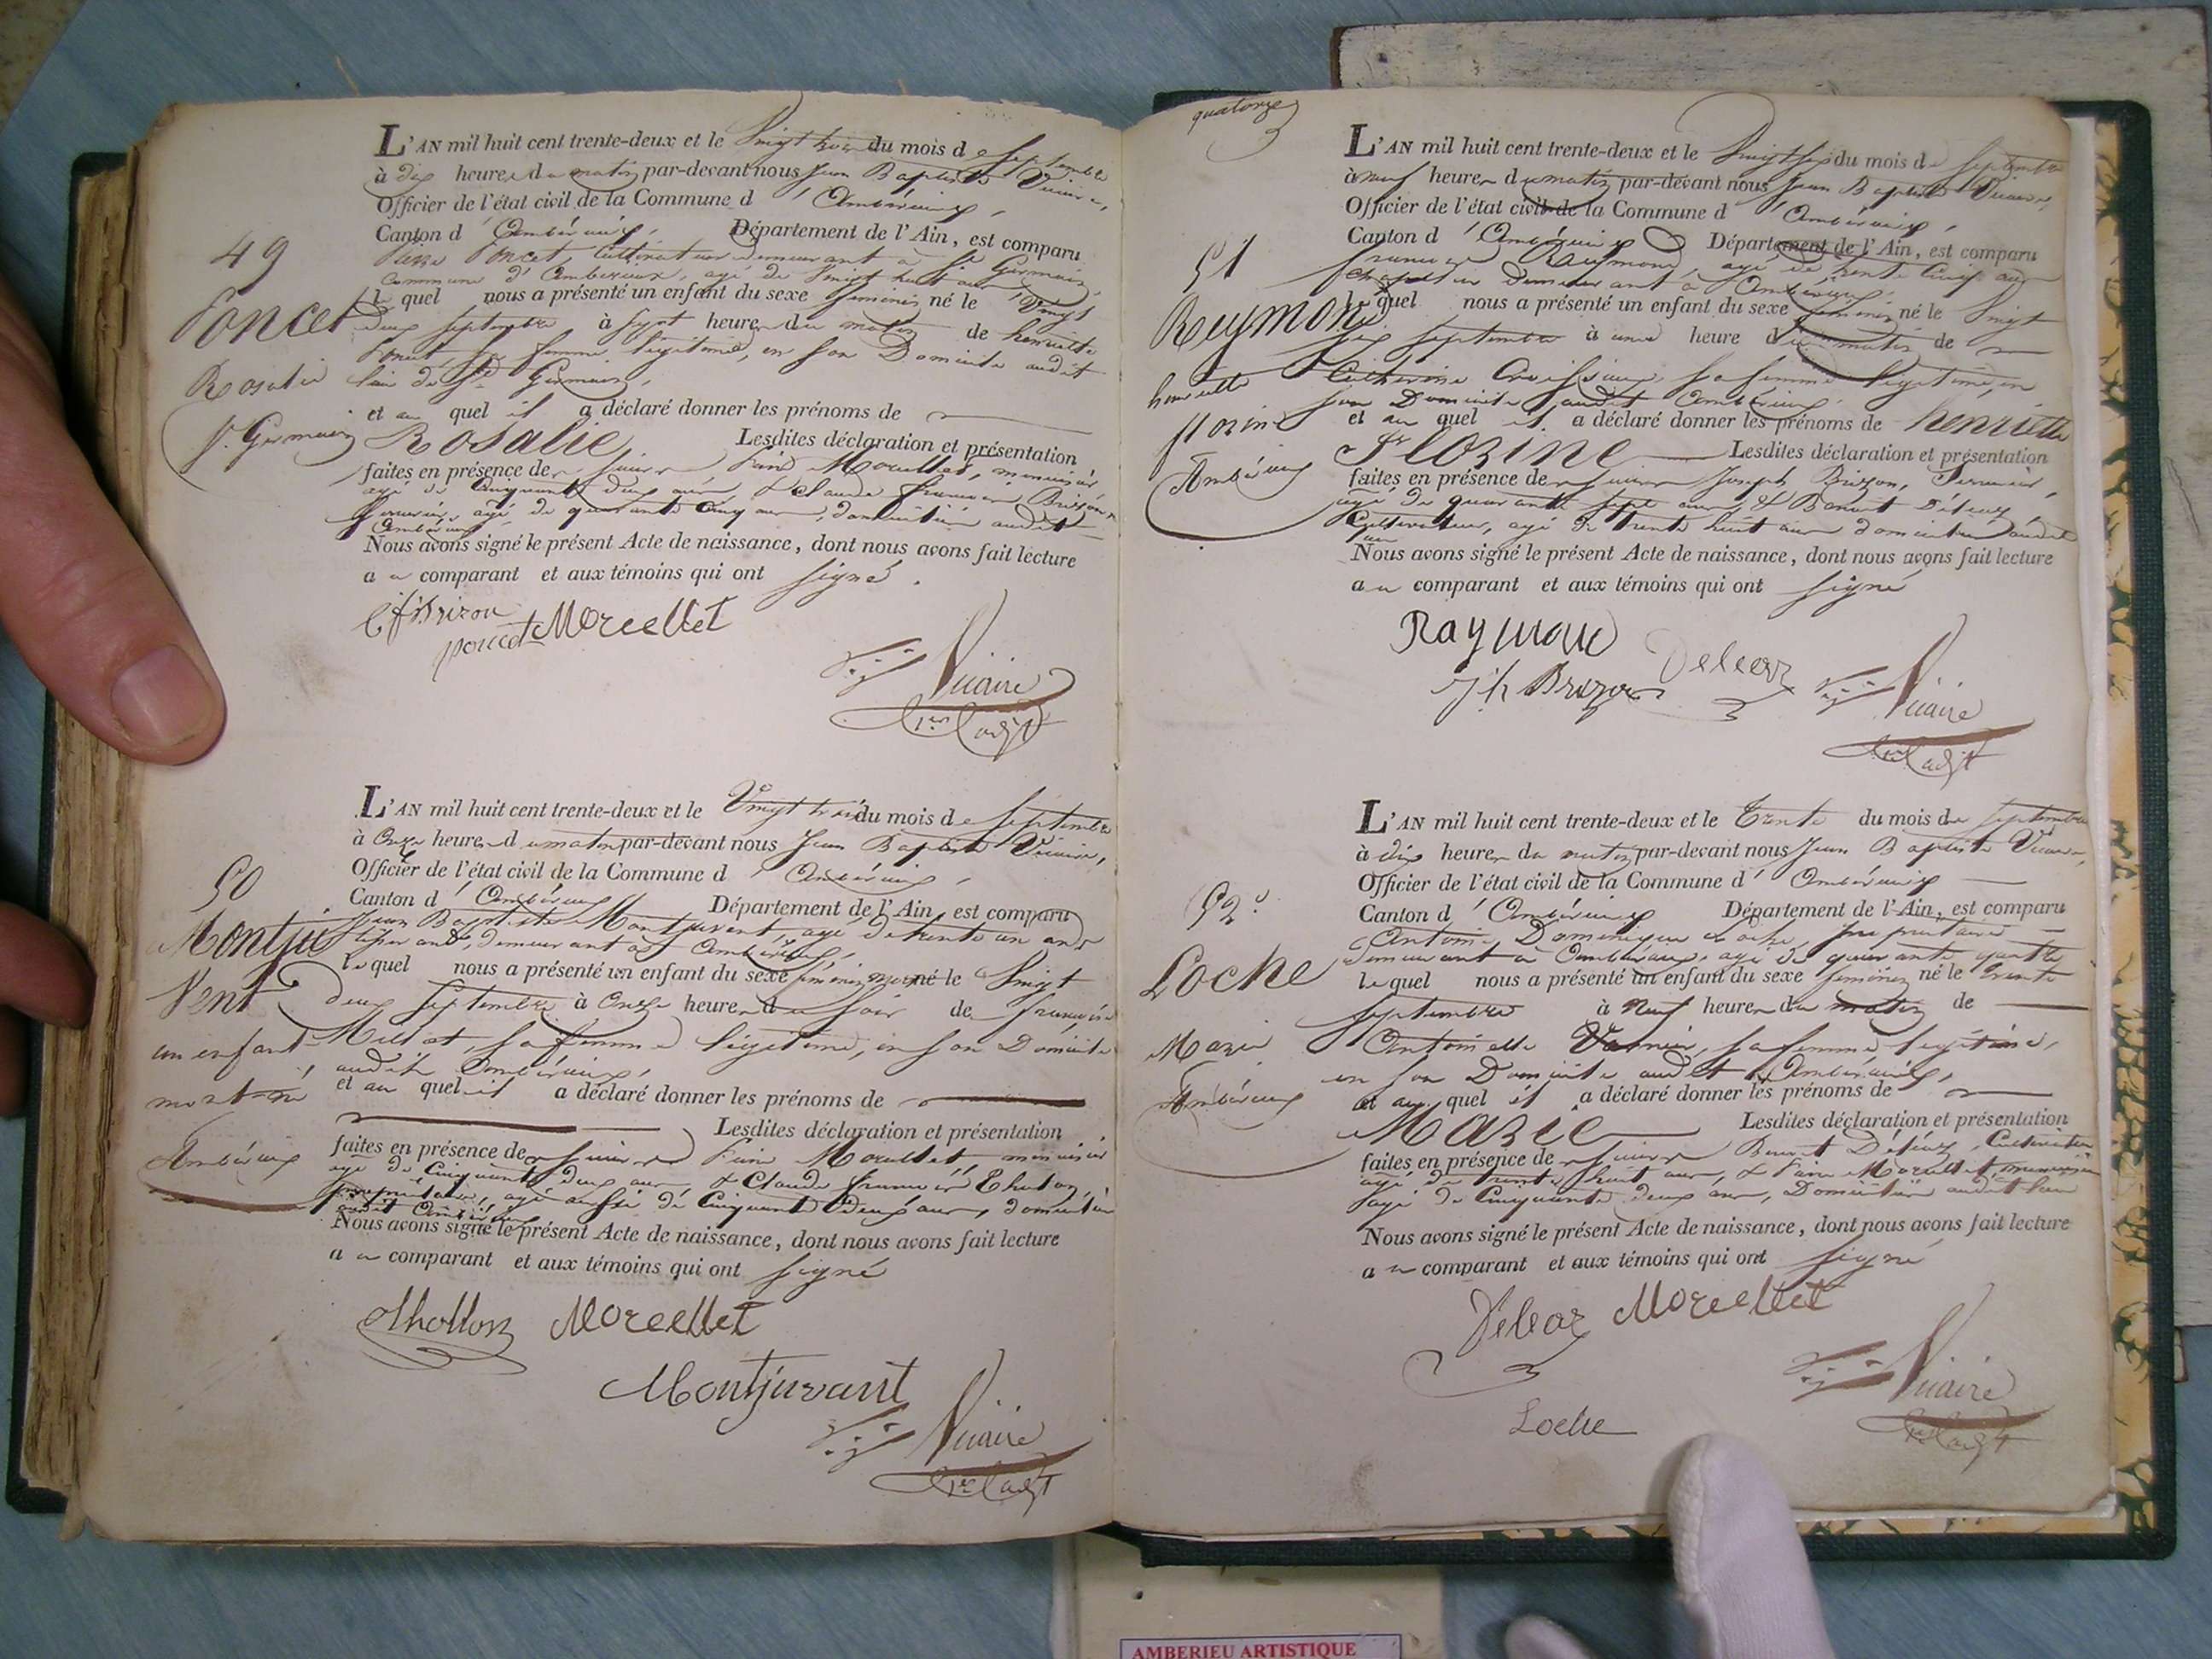 L'AN mil huit cent trente-deux et le Vingt trois du mois de Septembre
à dix heures du matin par-devant nous Jean Baptiste Vicaire,
Officier de l'état civil de la Commune d'Ambérieux,
Canton d'Ambérieux, Département de l'Ain, est comparu
49
Pierre Poncet, Cultivateur demeurant à St Germain,
commune d'Ambérieux, agé de Vingt huit ans
Poncet
le quel nous a présenté un enfant du sexe féminin né le Vingt
deux Septembre à sept heures du matin de henriette
Poncet, sa femme légitime, en son Domicile audit
Rosalie
lieu de St Germain,
et au quel il a déclaré donner les prénoms de
St Germain
Rosalie Lesdites déclaration et présentation
faites en présence de Morellet, menuisier
agé de Cinquante deux ans & Claude françois Brizon
agé de quarante Cinq ans, domiciliés audit
Ambérieux
Nous avons signé le présent Acte de naissance, dont nous avons fait lecture
au comparant et aux témoins qui ont signé.
C f Brizon
poncet Morellet
Vicaire
1er adjt
L'AN mil huit cent trente-deux et le Vingt trois du mois de Septembre
à Onze heures du matin par-devant nous Jean Baptiste Vicaire,
Officier de l'état civil de la Commune d'Ambérieux,
50
Canton d'Ambérieux Département de l'Ain, est comparu
Montju
Jean Baptiste Montjuvent, agé de trente un ans
demeurant à Ambérieux,
le quel nous a présenté un enfant du sexe féminin mort né le Vingt
Vent
deux Septembre à Onze heures du Soir de françoise
Millet, sa femme légitime, en son Domicile
un enfant
audit Ambérieux,
mort-né
et au quel il a déclaré donner les prénoms de
Lesdites déclaration et présentation
Ambérieux
faites en présence de Morellet menuisier
agé de Cinquante deux ans & Claude françois
propriétaire, agé aussi de Cinquante deux ans, domiciliés
audit Ambérieux
Nous avons signé le présent Acte de naissance, dont nous avons fait lecture
au comparant et aux témoins qui ont signé
Morellet
Montjuvant
Vicaire
1er adjt
quatorze
L'AN mil huit cent trente-deux et le Vingt six du mois de Septembre
à neuf heures du matin par-devant nous Jean Baptiste Vicaire,
Officier de l'état civil de la Commune d'Ambérieux,
Canton d'Ambérieux Département de l'Ain, est comparu
51
françois Reymond, agé de trente Cinq ans
demeurant à Ambérieux,
Reymond
le quel nous a présenté un enfant du sexe féminin né le Vingt
six Septembre à une heure du matin de
henriette
Catherine sa femme légitime, en
son Domicile audit Ambérieux,
florine
et au quel il a déclaré donner les prénoms de henriette
Florine Lesdites déclaration et présentation
Ambérieux
faites en présence de Joseph Brizon,
agé de quarante sept ans, & Benoit Déléaz,
Cultivateur, agé de trente huit ans domiciliés audit
lieu
Nous avons signé le présent Acte de naissance, dont nous avons fait lecture
au comparant et aux témoins qui ont signé
Raymond
Deleaz
Jh Brizon
Vicaire
1er adjt
L'AN mil huit cent trente-deux et le Trente du mois de Septembre
à dix heures du matin par-devant nous Jean Baptiste Vicaire,
Officier de l'état civil de la Commune d'Ambérieux
52e
Canton d'Ambérieux Département de l'Ain, est comparu
Antoine Dominique Loche, propriétaire
demeurant à Ambérieux, agé de quarante quatre
Loche
le quel nous a présenté un enfant du sexe féminin né le trente
Septembre à Neuf heures du matin de
Marie
Antoinette Varnier, sa femme légitime,
en son Domicile audit Ambérieux,
Ambérieux
et au quel il a déclaré donner les prénoms de
Marie Lesdites déclaration et présentation
faites en présence de Benoit Déléaz, Cultivateur
agé de trente huit ans, & Morellet, menuisier
agé de Cinquante deux ans, Domiciliés audit lieu
Nous avons signé le présent Acte de naissance, dont nous avons fait lecture
au comparant et aux témoins qui ont signé
Deleaz Morellet
Vicaire
1er adjt
Loche
AMBERIEU ARTISTIQUE